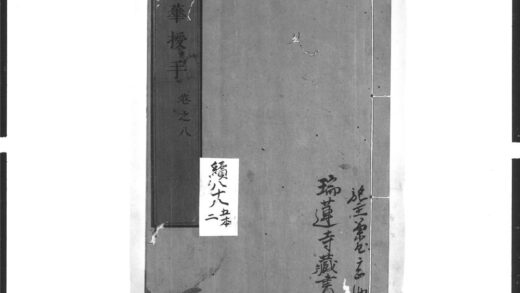 華授手 卷之八
續八十八
五本
二
瑞蓮寺藏書